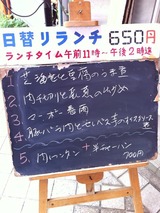 日替リランチ 650円
ランチタイム午前11時〜午後2時迄
1 芝海老と豆腐のうま煮
2 肉千切りと
3 マーボー春雨
4 豚バラ肉と
5. 肉ワンタン + 半チャーハン
700円